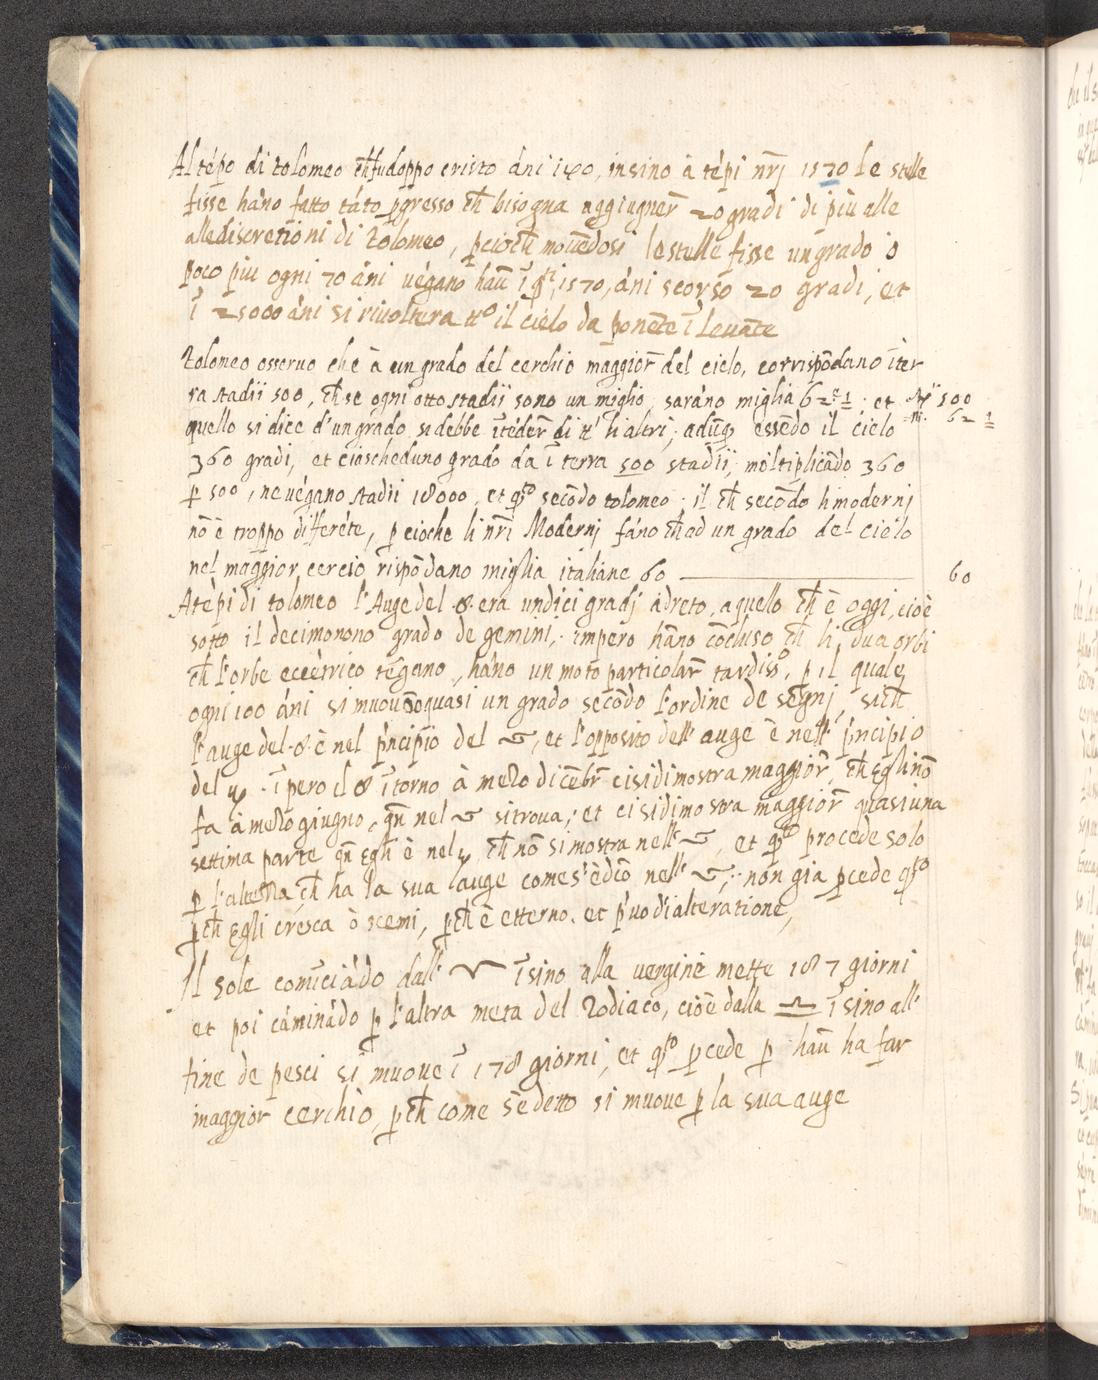 Al tépo di tolomeo ch̃ fu doppo cristo ãni 140, insino à tépi nr̃j 1570 le stelle
fisse hãno fatto táto ꝓgresso ch̃ bisogna aggiugner̃ 20 gradi di più alle
alle discretioni di tolomeo, ꝑcioch̃ mouẽdosi le stelle fisse un grado ò
poco piu ogni 70 ãni uẽgano hau̅ ĩ q̃sti 1570, áni scorso 20 gradi, et
ĩ 25000 áni si riuoltera tto il cielo da ponẽte ĩ leuãte
Tolomeo osseruo che à un grado del cerchio maggior̃ del cielo, corrispõdano ĩ ter
ra stadii 500, ch̃ se ogni otto stadii sono un miglio, saráno miglia 62 e ½ · et
st.ii 500
mi. 62 ½
quello si dice d'un grado si debbe ĩtẽder̃ di tt' li altri; adũq̃ essẽdo il cielo
360 gradi, et ciascheduno grado da ĩ terra 500 stadii, moltiplicãdo 360
ꝑ 500, ne uégano stadii 18000, et q̃sto secõdo tolomeo · il ch̃ secõdo li modernj
nõ è troppo differéte, ꝑ cioche li nr̃i Modernj fáno ch̃ ad un grado del cielo
nel maggior cercio rispõdano miglia italiane 60 60
A tẽpi di tolomeo l'Auge del ☉ era undici gradj ádreto, a quello ch̃ è oggi, cioè
sotto il decimonono grado de gemini, · impero hãno cõcluso ch̃ li dua orbi
ch̃ l'orbe eccẽtrico tẽgano, háno un moto particolar̃ tardiss.o, ꝑ il quale
ogni 100 áni si muouõo quasi un grado secõdo l'ordine de segnj, sich̃
l'auge del ☉ è nel p̃ncipio del ♋, et l'opposito dell' auge è nell' p̃ncipio
del ♑ · ĩpero il ☉ ĩtorno à mezo dicẽbr̃ ci si dimostra maggior̃, ch̃ egli nõ
fa à mezo giugno, qñ nel ♋ si troua; et ci si dimostra maggior̃ quasi una
settima parte qñ egli è nel ♑, ch̃ nõ si mostra nell' ♋, et q̃sto procede solo
ꝑ l'alteza, ch̃ ha la sua auge come s'è dc̃o nell' ♋; · non già ꝓcede q̃sto
ꝑch̃ egli cresca ò scemi, ꝑch̃ è etterno. et p̃uo di alteratione,
Il sole comĩciádo dall' ♈ ĩsino alla uergine mette 187 giorni
et poi cáminádo ꝑ l'altra meta del zodiaco, cioè dalla ♎ ĩsino all'
fine de pesci si muoue ĩ 178 giorni, et q̃sto ꝓcede ꝑ hau̅ ha far
maggior cerchio, ꝑch̃ come s'è detto si muoue ꝑ la sua auge